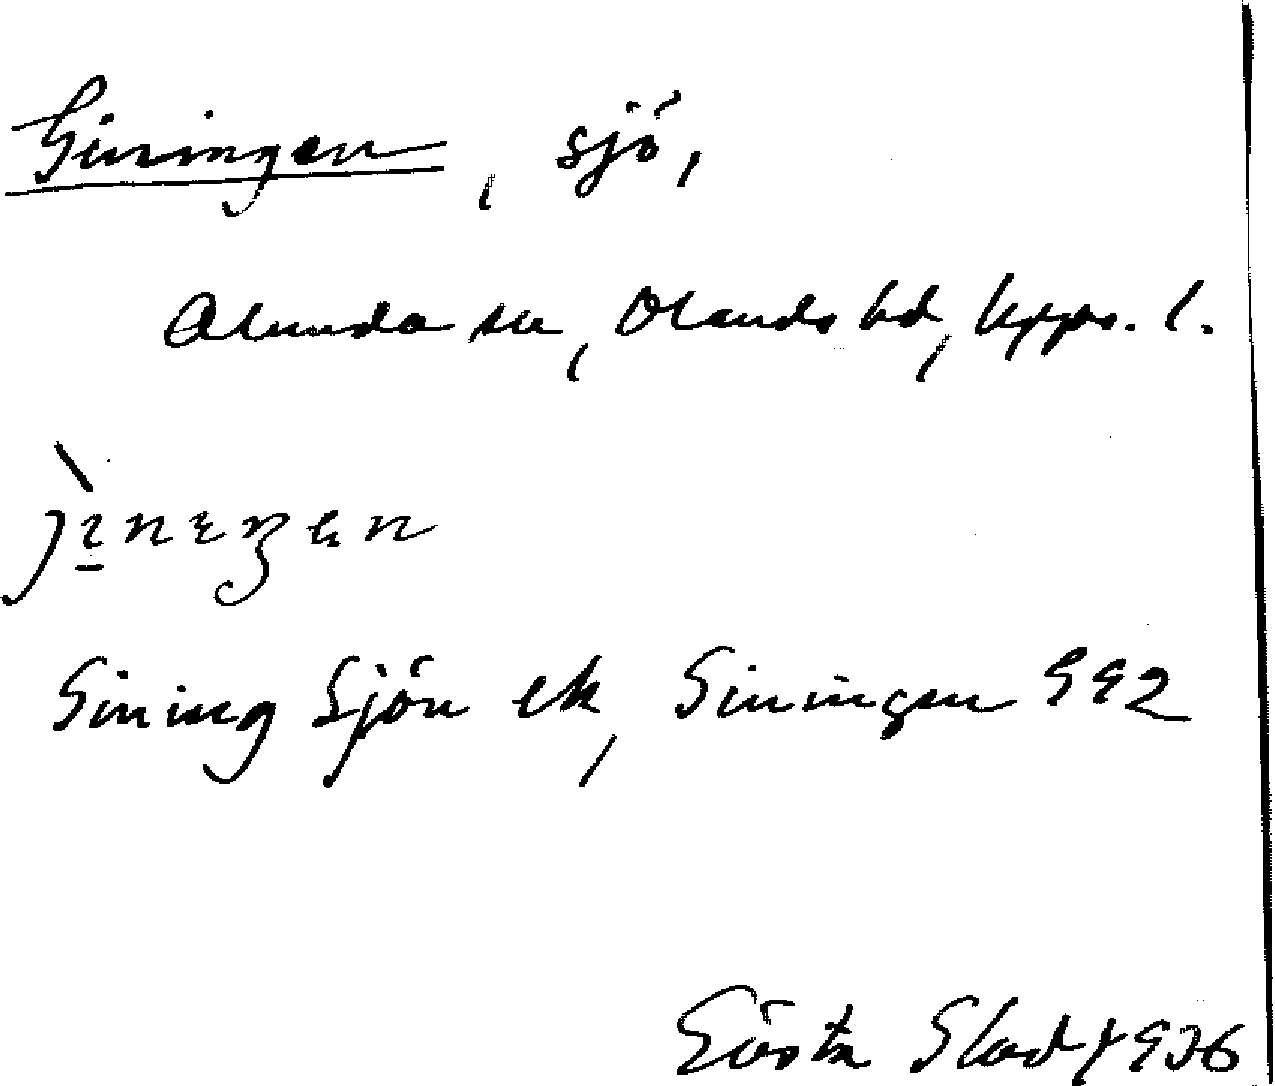 Giningen, sjö,
Alunda sn, Olands hd, Upps. l.
jìnıŋen
Gining Sjön ek, Giningen GS2
Gösta Blad 1936